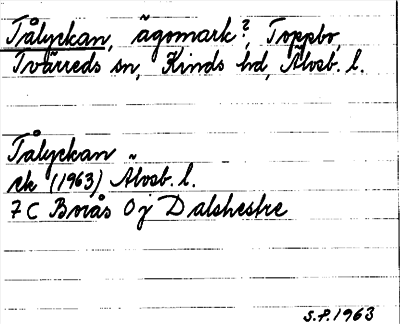 Tålyckan, ägomark?, Toppbo,
Tvärreds sn, Kinds hd, Älvsb. l.
Tålyckan
ek (1963) Älvsb. l.
7 C Borås 0j Dalshestre
S.P. 1963